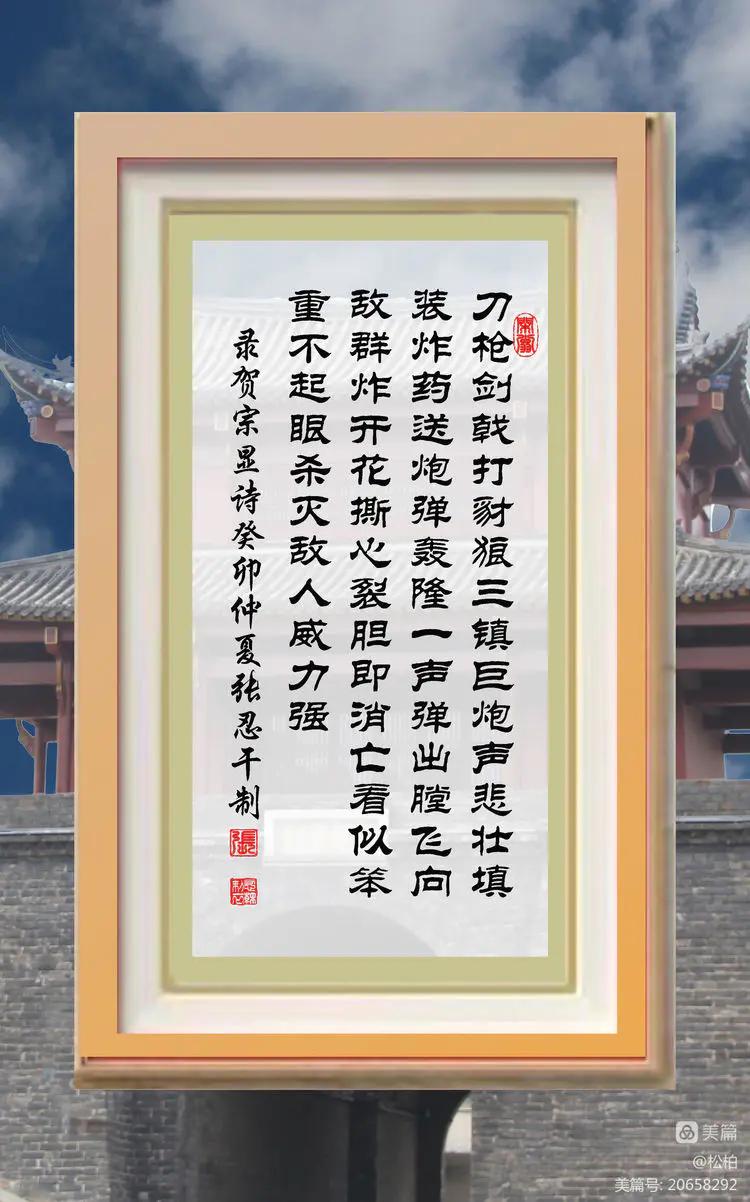 刀枪剑戟打豺狼三镇巨炮声悲壮填
装炸药送炮弹轰隆一声弹出膛飞向
敌群炸开花撕心裂胆即消亡看似笨
重不起眼杀灭敌人威力强
录贺宗显诗癸卯仲夏张忍干制
美篇
@松柏
美篇号: 20658292